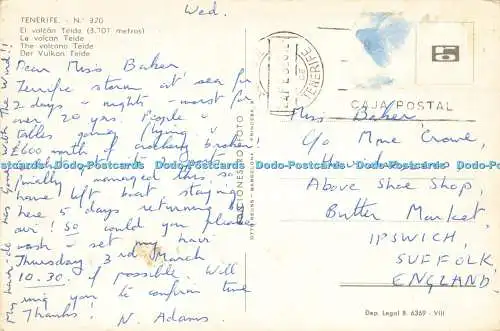 Wed.
TENERIFE. - N.º 370
El volcán Teide (3.707 metros)
Le volcan Teide
The volcano Teide
Der Vulkan Teide
Dear Miss Baker
Terrific storm at sea for
2 days & nights - worst for
over 20 yrs. People &
tables going flying &
£600 worth of crockery broken!
finally managed this, so
have left boat staying
here 5 days returning by
air! So could you please
wash & set my hair
Thursday 3rd March
10.30 if possible. Will
ring you to confirm time
Thanks! N. Adams.
My hair-do has gone with The Wind!!
TENERIFE
CAJA POSTAL
Miss Baker,
C/o Mme Crowe,
Above Shoe Shop
Butter Market,
IPSWICH,
SUFFOLK,
ENGLAND.
Dep. Legal B. 6369 - VIII